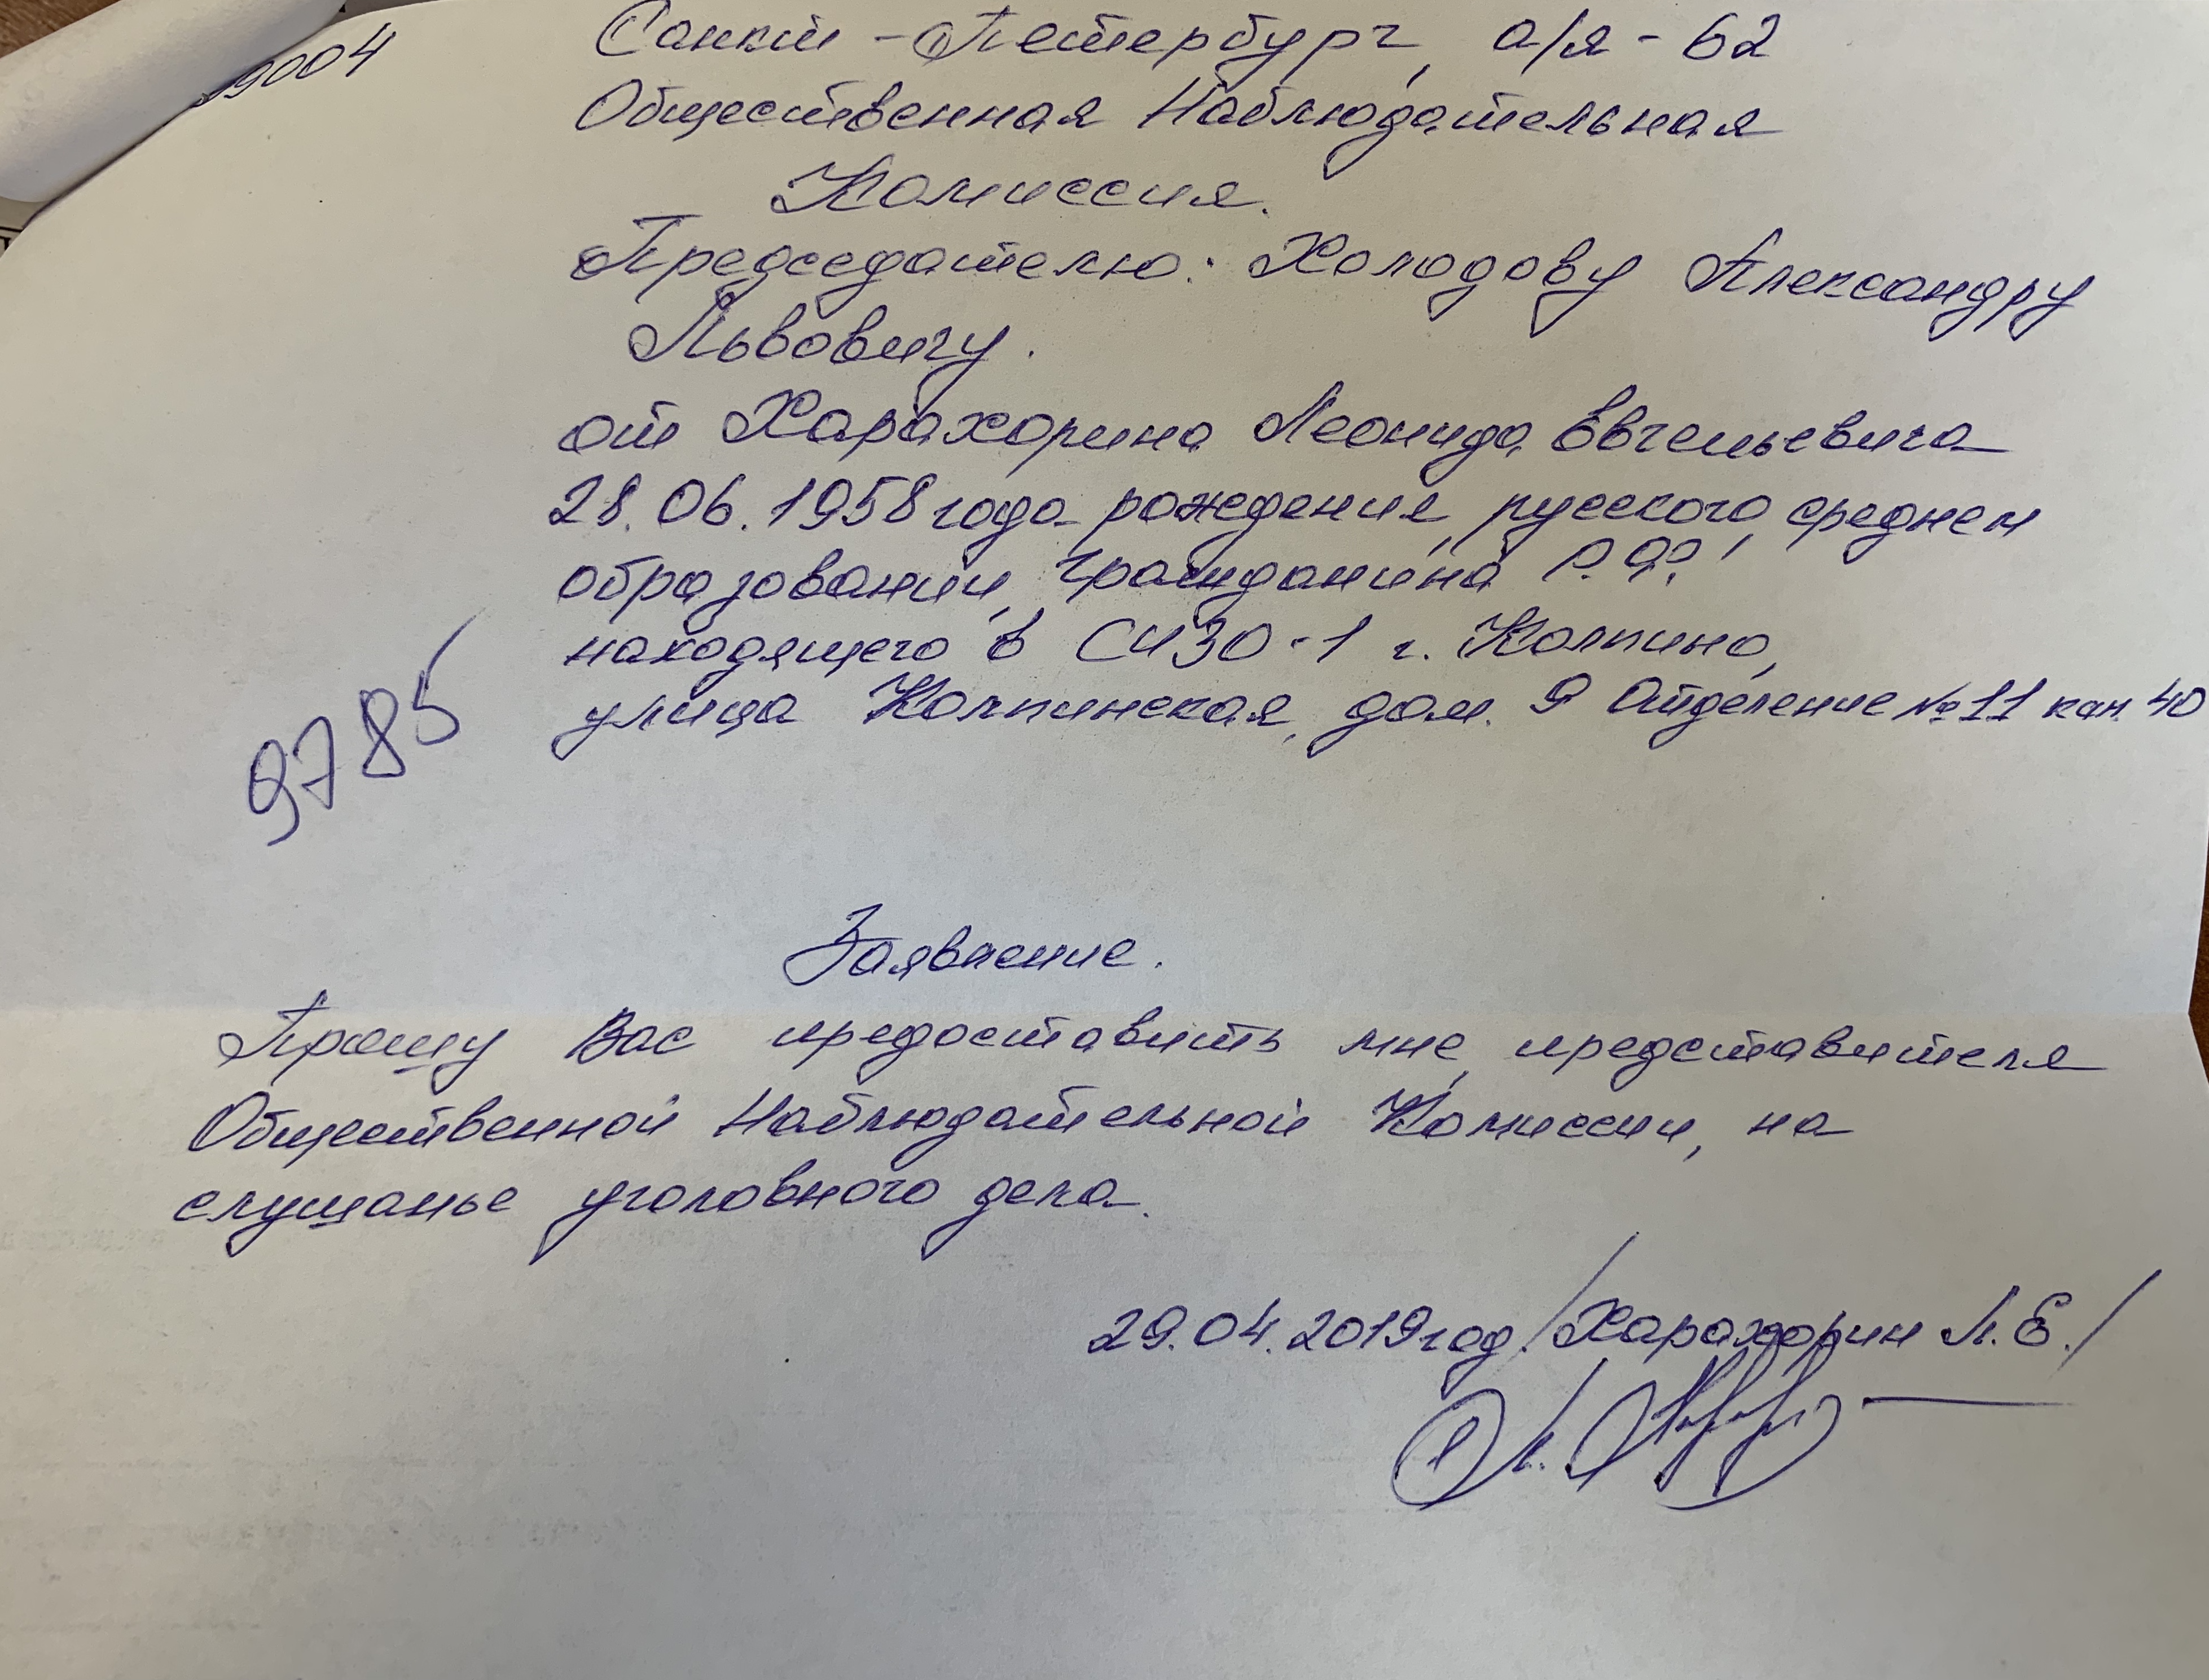 9004
Санкт-Петербург, а/я-62
Общественная Наблюдательная
Комиссия.
Председателю: Холодову Александру
Львовичу.
от Харахорина Леонида Евгеньевича
28.06.1958 года рождения, русского, среднем
образовании, гражданина Р.Ф.,
находящего в СИЗО-1 г. Колпино,
улица Колпинская, дом. 9 Отделение №11 кам. 40
9785
Заявление.
Прошу Вас предоставить мне, представителя
Общественной Наблюдательной Комиссии, на
слушанье уголовного дела.
29.04.2019 год. /Харахорин Л.Е./